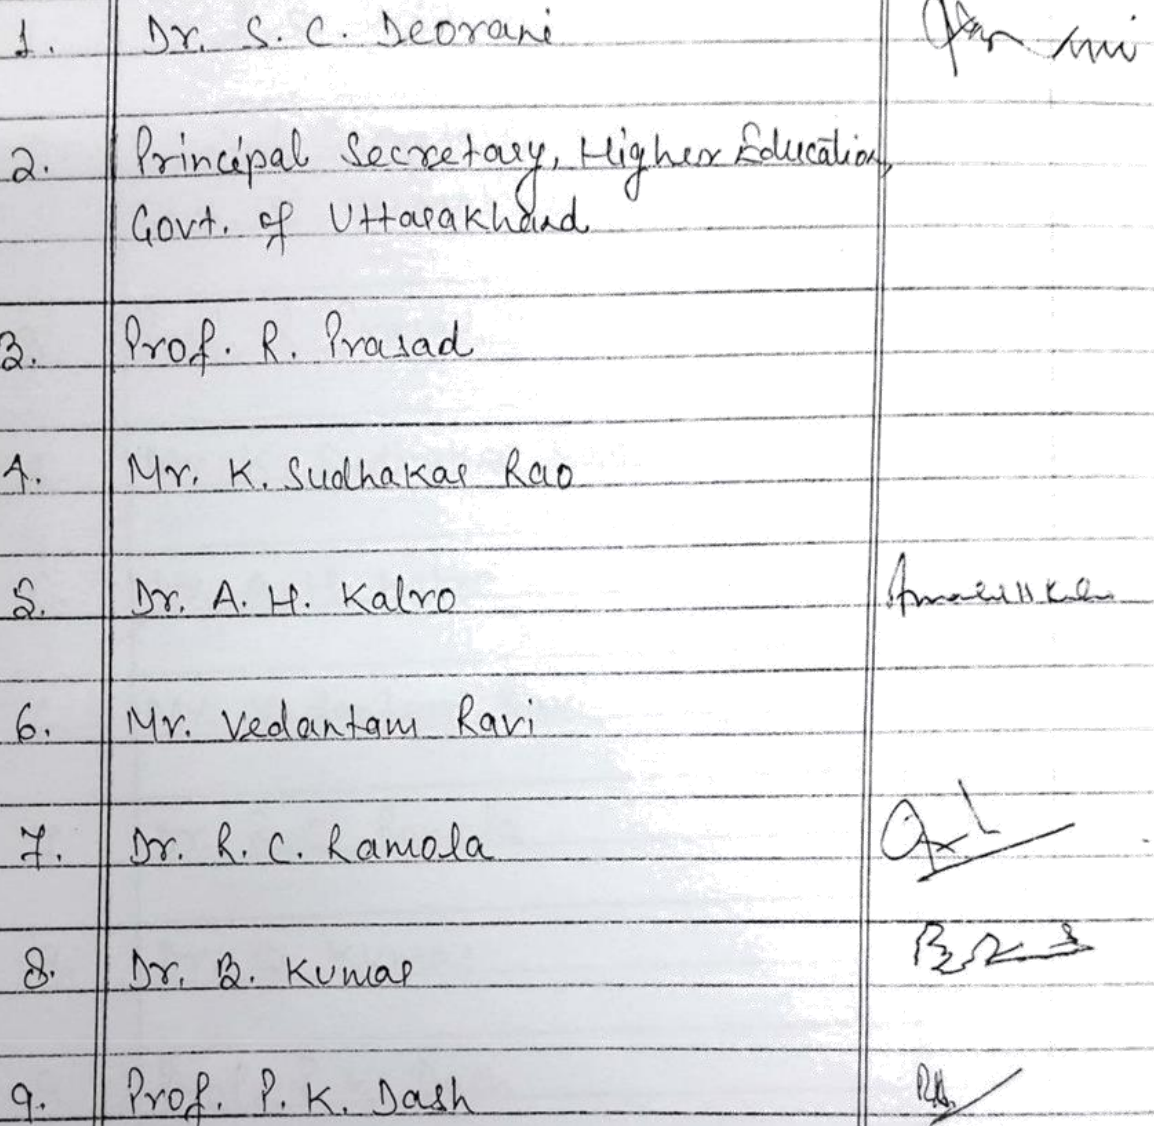 1. Dr. S. C. Deorani
2. Principal Secretary, Higher Education,
Govt. of Uttarakhand
3. Prof. R. Prasad
4. Mr. K. Sudhakar Rao
5. Dr. A. H. Kalro
6. Mr. Vedantam Ravi
7. Dr. R. C. Ramola
8. Dr. B. Kumar
9. Prof. P. K. Dash